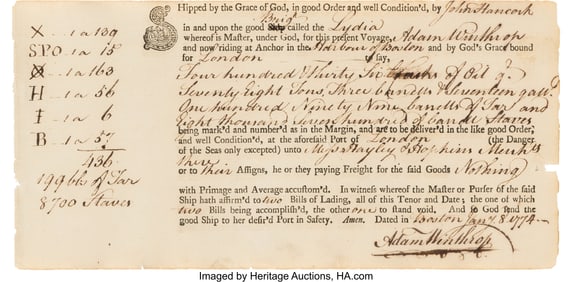 X - 1 a 139
SPO - 1 a 15
- 1 a 163
H - 1 a 56
I - 1 a 6
B - 1 a 57
436
199 bbls of Tar
8700 Staves
Shipped by the Grace of God, in good Order and well Condition'd, by John Hancock
Brigt
in and upon the good Ship called the Lydia
whereof is Master, under God, for this present Voyage, Adam Winthrop
and now riding at Anchor in the Harbour of Boston and by God's Grace bound
for London to say,
Four hundred Thirty Six of Oil qt.
Seventy Eight Tons, Three barrells & Seventeen galls.
One hundred Ninety Nine barrells of Tar and
Eight thousand Seven hundred of barrel Staves
being mark'd and number'd as in the Margin, and are to be deliver'd in the like good Order,
and well Condition'd, at the aforesaid Port of London (the Danger
of the Seas only excepted) unto Messrs Hayley & Hopkins Merchts
there
or to their Assigns, he or they paying Freight for the said Goods Nothing
with Primage and Average accustom'd. In witness whereof the Master or Purser of the said
Ship hath affirm'd to two Bills of Lading, all of this Tenor and Date; the one of which
two Bills being accomplish'd, the other one to stand void. And so God send the
good Ship to her desir'd Port in Safety. Amen. Dated in Boston Jany. 8. 1774
Adam Winthrop
Imaged by Heritage Auctions, HA.com